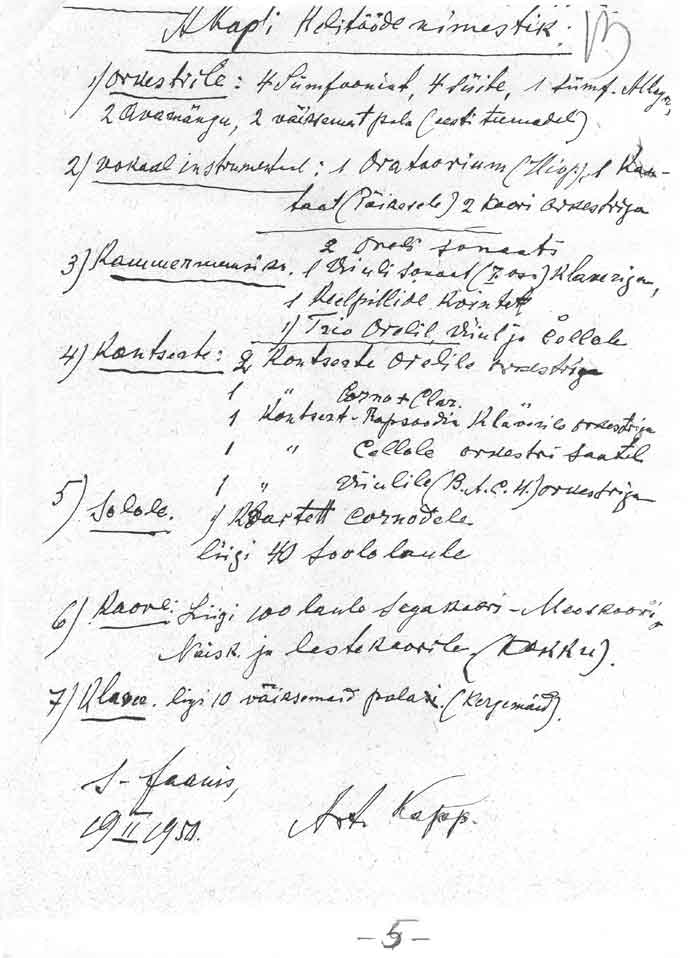 A Kapp'i Helitööde nimestik.
1) Orkestrile: 4 Sümfooniat, 4 Süite, 1 Sümf. Allegr,
2 Avamängu, 2 väiksemat pala (eesti teemadel)
2) Vokaal instrumentaal: 1 Oratoorium (Hiiop), 1 Kan-
taat (Päikesele) 2 koori orkestriga
2 oreli sonaati
3) Kammermuusika. 1 Viiuli sonaat (I osa) Klaveriga,
1 Keelpillide Kvintett
1) Trio Orelil, Viiul ja Cellole
4) Kontserte: 2 Kontserte Orelile orkestriga
1 " Corno + Clar.
1 Kontsert-Rapsoodia Klaverile orkestriga
1 " Cellole orkestri saatel
1 " Viiulile (B.A.C.H.) orkestriga
5) Solole. 1 Kvartett Cornodele
Ligi 40 Soololaule
6) Koore: Ligi 100 laulu Segakoori - Meeskoori,
Naisk. ja lastekoorile (Kokku).
7) Klave. ligi 10 väiksemaid palasi. (Kergemaid).
S-Jaanis,
19 II 1951.
Art. Kapp.
-5-